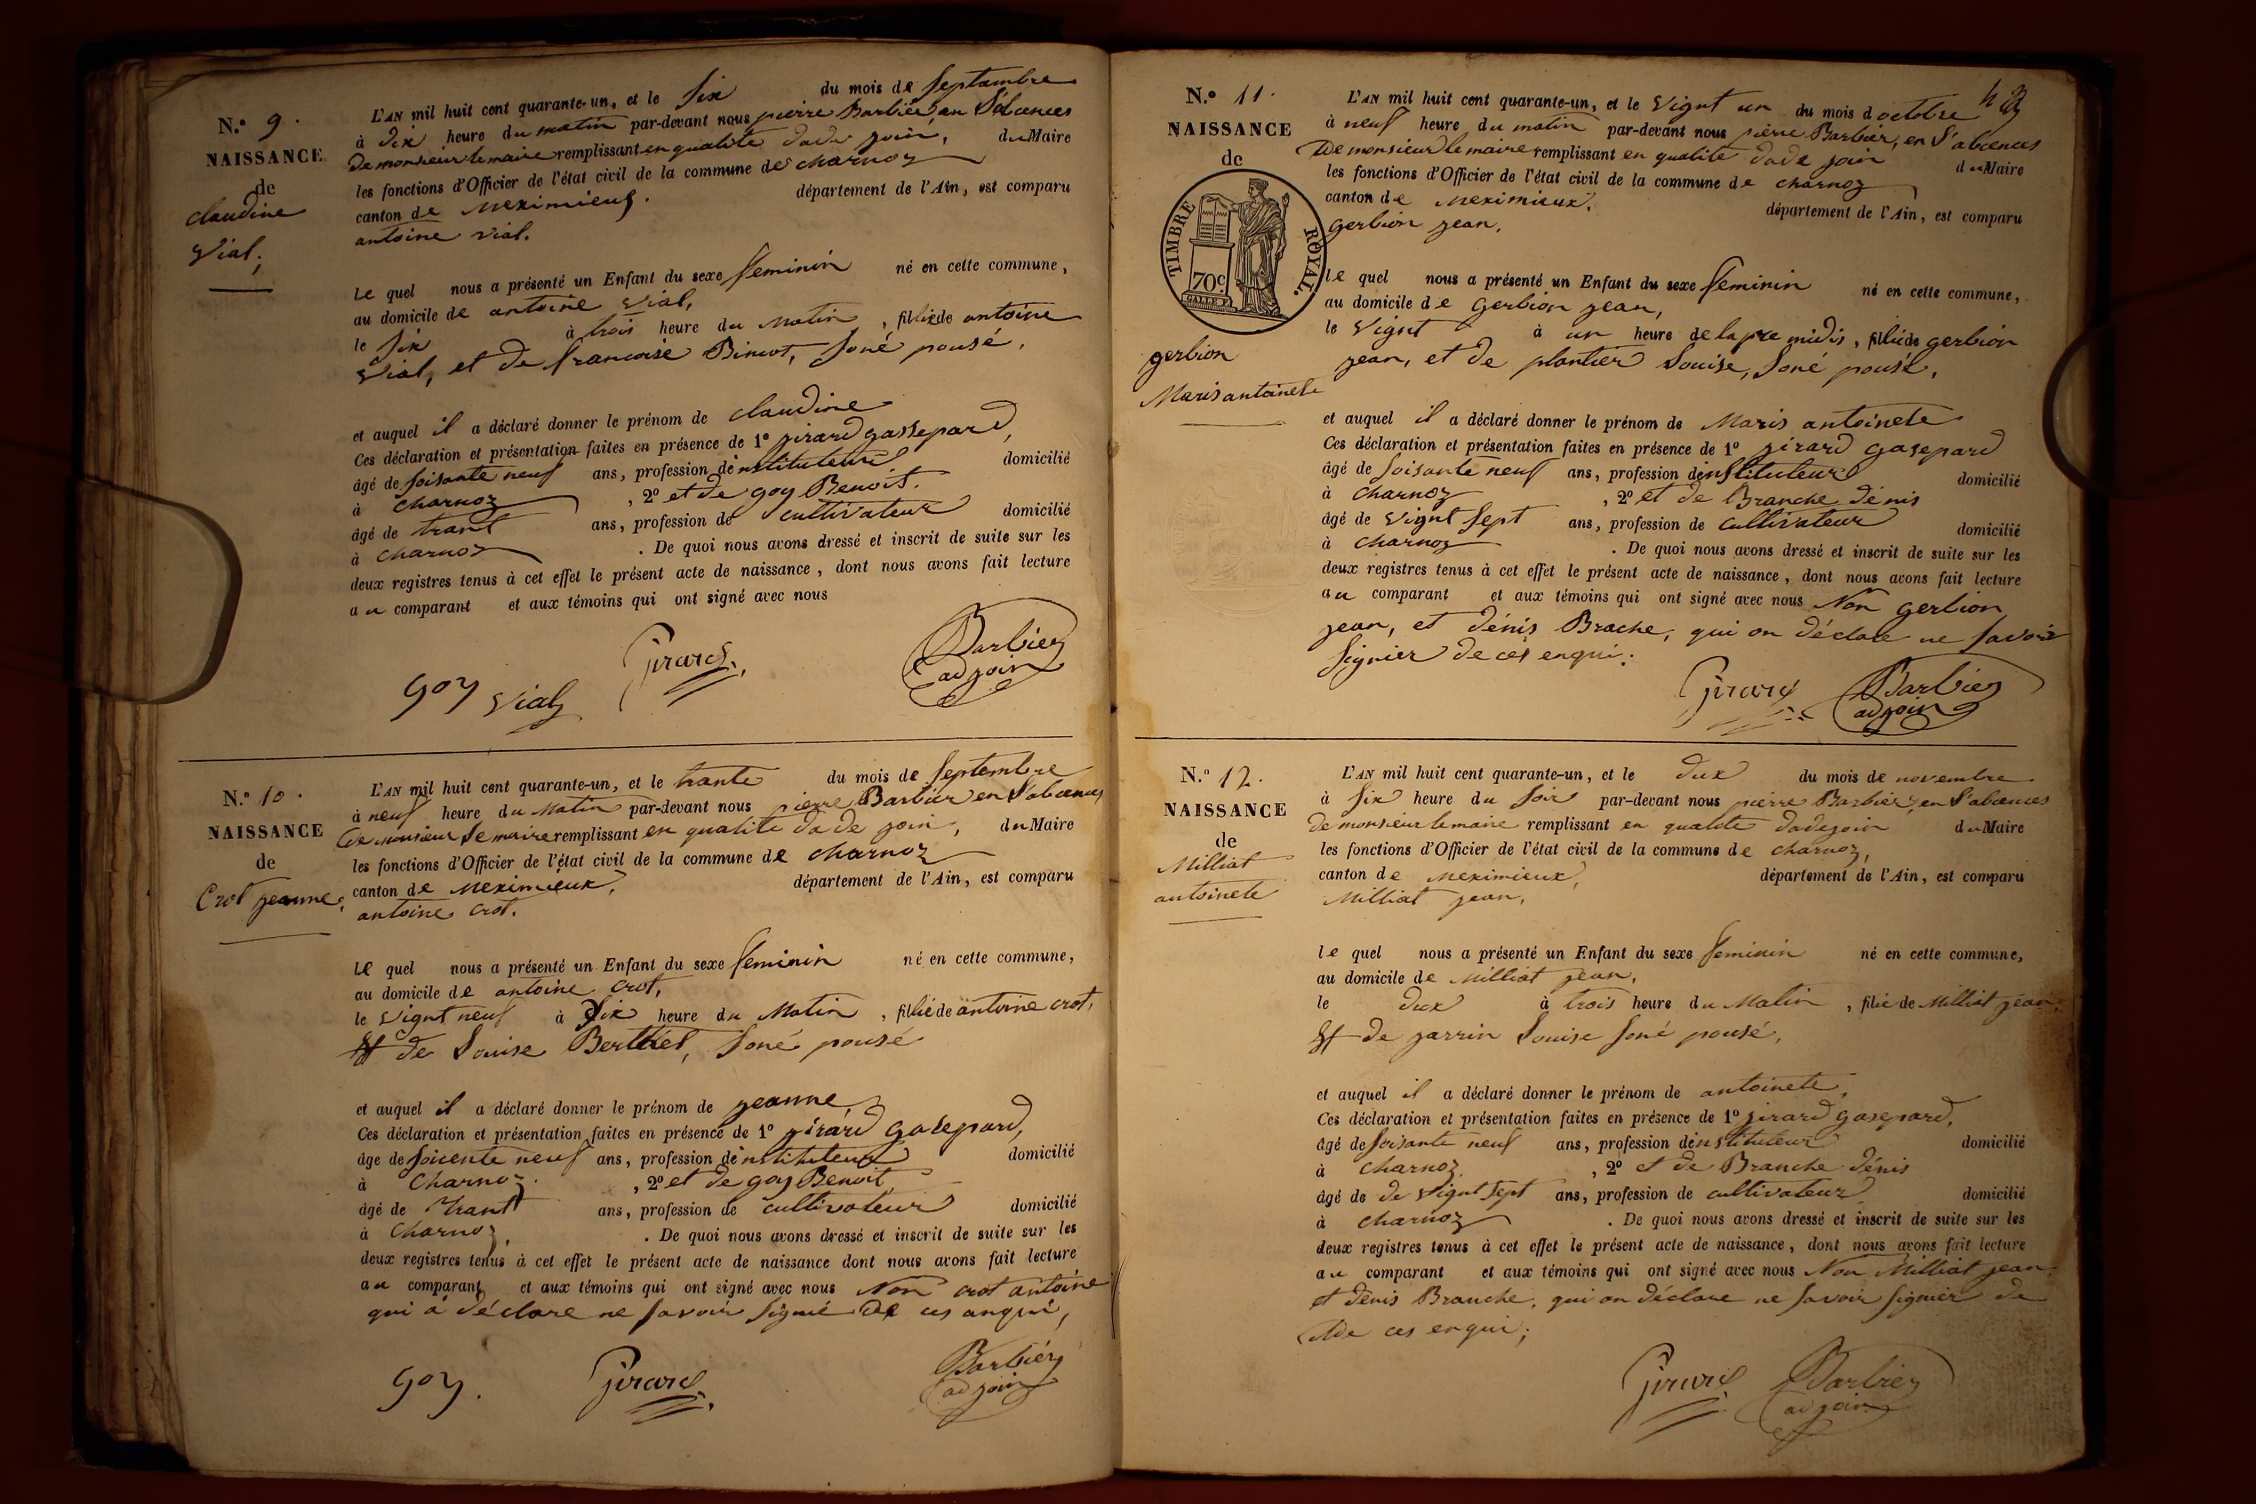 N.° 9.
NAISSANCE
de
claudine
Vial,
L'AN mil huit cent quarante-un, et le six du mois de septambre
à dix heure du matin par-devant nous pierre Barbier, an S'abcences
de monsieur le maire remplissant en qualité dade join, du Maire
les fonctions d'Officier de l'état civil de la commune de charnoz
canton de Meximieux. département de l'Ain, est comparu
antoine vial.
Le quel nous a présenté un Enfant du sexe feminin né en cette commune,
au domicile de antoine vial,
le six à trois heure du Matin, fillie de antoine
vial, et de francoise Binvot, soné pousé,
et auquel il a déclaré donner le prénom de claudine
Ces déclaration et présentation faites en présence de 1° girard gassepard,
âgé de soisante neuf ans, profession de instituteur domicilié
à charnoz, 2° et de goy Benoit.
âgé de trant ans, profession de cultivateur domicilié
à charnoz. De quoi nous avons dressé et inscrit de suite sur les
deux registres tenus à cet effet le présent acte de naissance, dont nous avons fait lecture
au comparant et aux témoins qui ont signé avec nous
goy vial Girard Barbier
adjoin
N.° 10.
NAISSANCE
de
Crot jeanne,
L'AN mil huit cent quarante-un, et le trante du mois de septembre
à neuf heure du Matin par-devant nous pierre Barbier en S'abcences
de monsieur le maire remplissant en qualité dade join, du Maire
les fonctions d'Officier de l'état civil de la commune de charnoz
canton de Meximieux, département de l'Ain, est comparu
antoine crot.
Le quel nous a présenté un Enfant du sexe feminin né en cette commune,
au domicile de antoine crot,
le vignt neuf à six heure du Matin, fillie de antoine crot,
Et de Louise Berthet, soné pousé
et auquel il a déclaré donner le prénom de jeanne,
Ces déclaration et présentation faites en présence de 1° girard gasepard,
âge de soicente neuf ans, profession de instituteur domicilié
à Charnoz., 2° et de goy Benoit
âgé de Trant ans, profession de cultivateur domicilié
à Charnoz,. De quoi nous avons dressé et inscrit de suite sur les
deux registres tenus à cet effet le présent acte de naissance dont nous avons fait lecture
au comparant et aux témoins qui ont signé avec nous Non crot antoine
qui a déclare ne savoir signié de ces anqui,
goy. Girard Barbier
adjoin
N.° 11.
NAISSANCE
de
TIMBRE ROYAL.
70c
gerbion
Maris antoinete
L'AN mil huit cent quarante-un, et le vignt un du mois d octobre
à neuf heure du matin par-devant nous pierre Barbier, en S'abcences
De monsieur le maire remplissant en qualité dade join du Maire
les fonctions d'Officier de l'état civil de la commune de charnoz
canton de Meximieux, département de l'Ain, est comparu
gerbion jean,
Le quel nous a présenté un Enfant du sexe feminin né en cette commune,
au domicile de gerbion jean,
le vignt à un heure de lapre midis, fillié de gerbion
jean, et de plantier Louise, soné pousé,
et auquel il a déclaré donner le prénom de Maris antoinete
Ces déclaration et présentation faites en présence de 1° girard gasepard
âgé de soisante neuf ans, profession de instituteur domicilié
à charnoz, 2° et de Branche dénis
âgé de vignt sept ans, profession de cultivateur domicilié
à charnoz. De quoi nous avons dressé et inscrit de suite sur les
deux registres tenus à cet effet le présent acte de naissance, dont nous avons fait lecture
au comparant et aux témoins qui ont signé avec nous Non gerbion
jean, et dénis Brache, qui on déclare ne savoir
signier de ces enqui.
Girard Barbier
adjoin
N.° 12.
NAISSANCE
de
Milliat
antoinete
L'AN mil huit cent quarante-un, et le dux du mois de novembre
à six heure du soir par-devant nous pierre Barbier, en S'abcences
de monsieur le maire remplissant en qualite dadejoin du Maire
les fonctions d'Officier de l'état civil de la commune de charnoz,
canton de Meximieux, département de l'Ain, est comparu
Milliat jean,
Le quel nous a présenté un Enfant du sexe feminin né en cette commune,
au domicile de Milliat jean,
le dux à trois heure du Matin, filie de Milliat jean
Et de jarrin Louise soné pousé,
et auquel il a déclaré donner le prénom de antoinete,
Ces déclaration et présentation faites en présence de 1° girard gasepard,
âgé de soisante neuf ans, profession de instituteur domicilié
à Charnoz, 2° et de Branche dénis
âgé de de vignt sept ans, profession de cultivateur domicilié
à charnoz. De quoi nous avons dressé et inscrit de suite sur les
deux registres tenus à cet effet le présent acte de naissance, dont nous avons fait lecture
au comparant et aux témoins qui ont signé avec nous Non Milliat jean
et dénis Branche, qui on déclare ne savoir signier de
de ces enqui;
Girard Barbier
adjoin